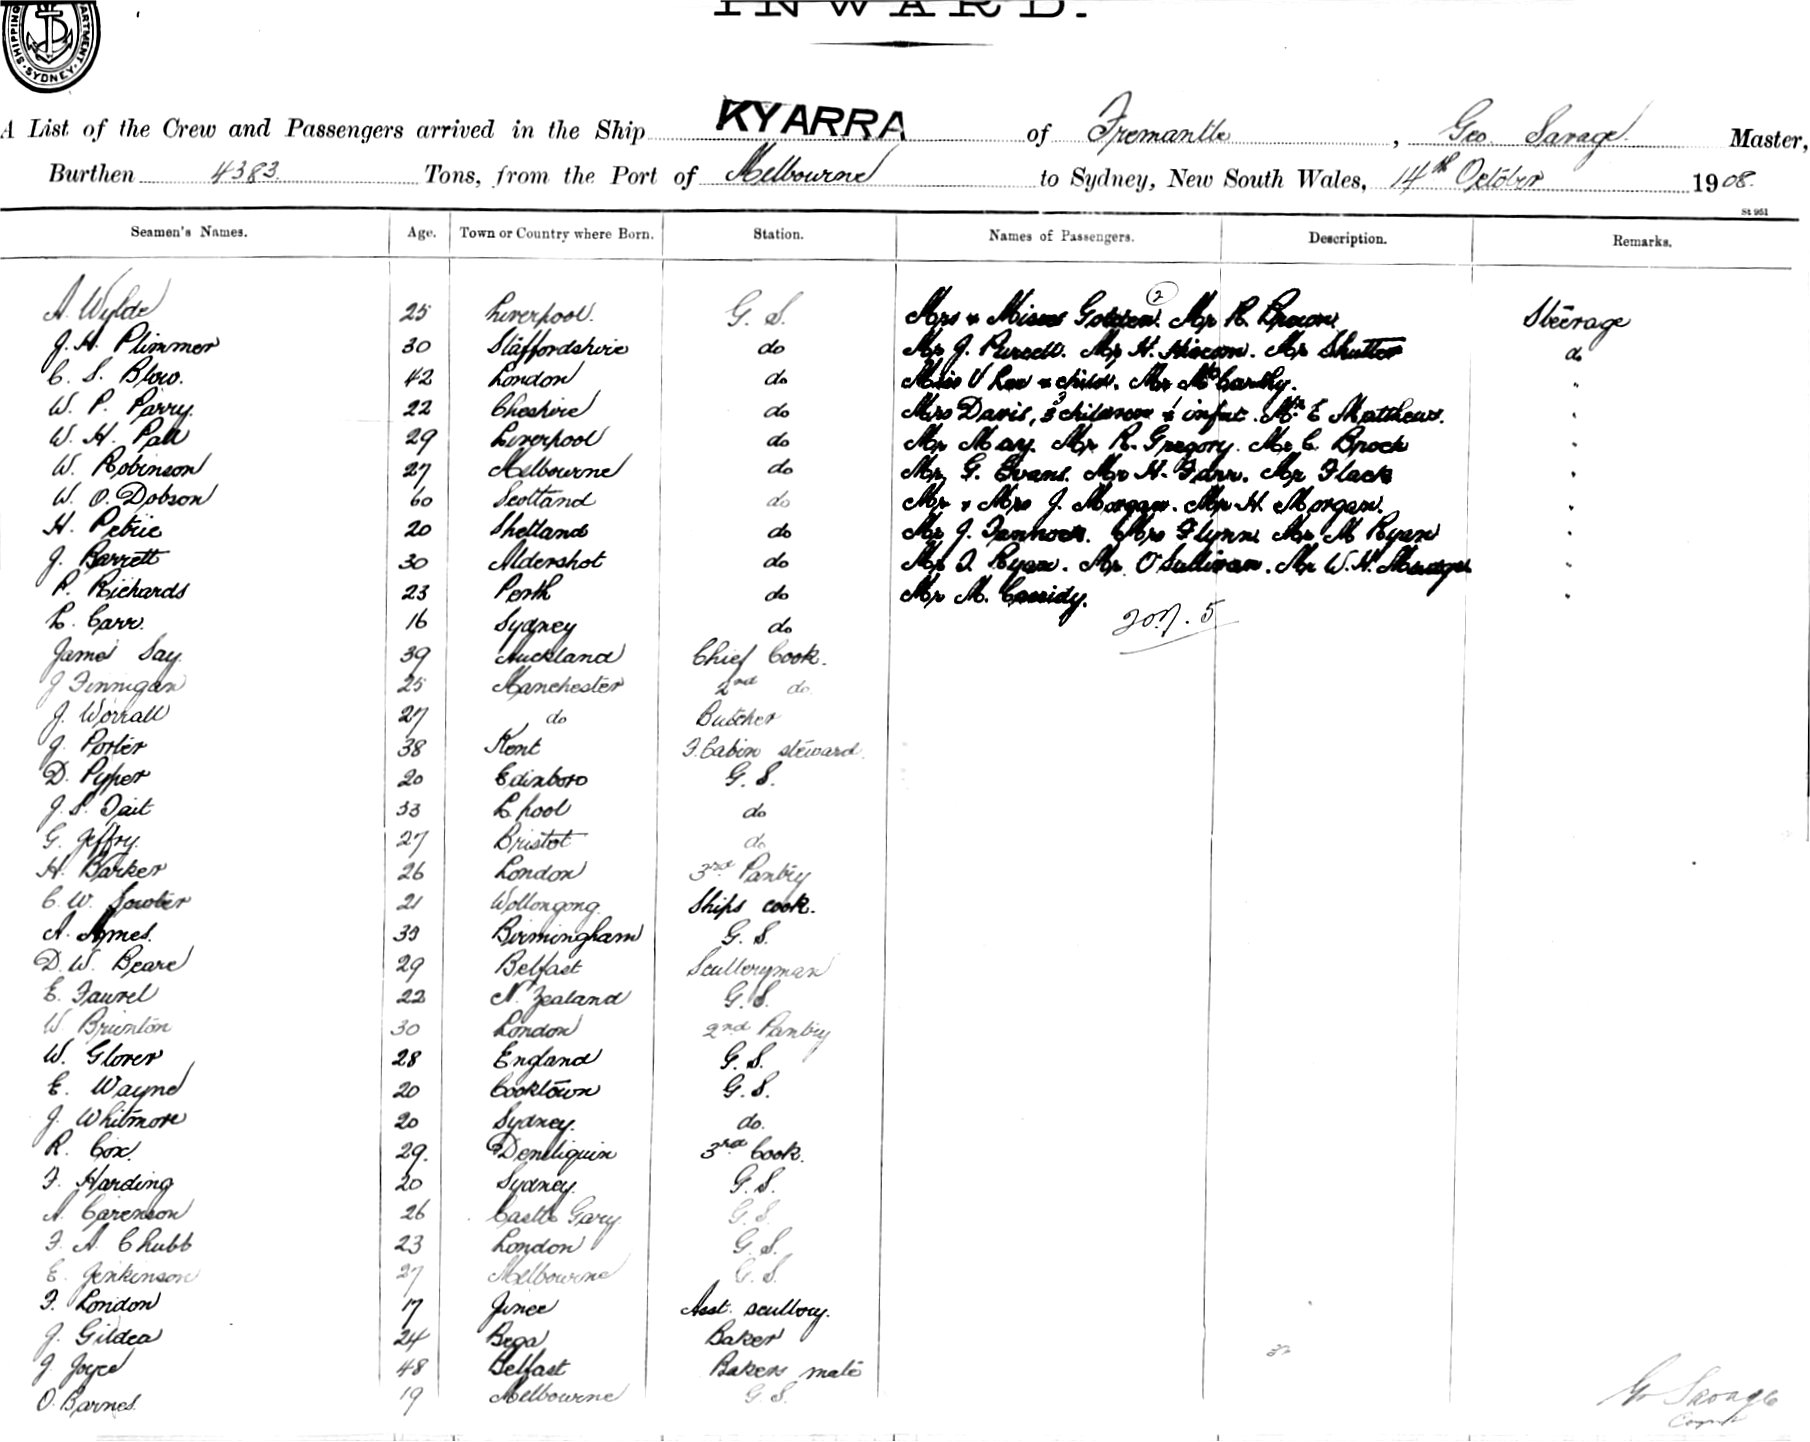 SHIPPING DEPARTMENT. SYDNEY.
INWARD.
A List of the Crew and Passengers arrived in the Ship KYARRA of Fremantle, Geo. Savage. Master,
Burthen 4383. Tons, from the Port of Melbourne to Sydney, New South Wales, 14th October 1908.
St 951
Seamen's Names. Age. Town or Country where Born. Station. Names of Passengers. Description. Remarks.
A. Wylde 25 Liverpool. G. S. Mrs & Misses Golden. 2 Mr R. Brown. Steerage
J. H. Plimmer 30 Staffordshire do Mr J. Purcell. Mr H. Mr Shutter do
C. S. Blow. 42 London do Miss V Lee & child. Mr McCarthy. "
W. P. Parry. 22 Cheshire do Mrs Davis, 3 children & 1 infnt. Mr E Matthews. "
W. H. Pall 29 Liverpool do Mr May. Mr R. Gregory. Mr C. Brock "
W. Robinson 27 Melbourne do Mr G. Evans. Mr H. Farr. Mr Flack "
W. O. Dobson 60 Scotland do Mr & Mrs J. Morgan. Mr H. Morgan. "
H. Petrie 20 Shetland do Mr J. Mrs Flynn Mr M Ryan "
J. Barrett 30 Aldershot do Mr J. Ryan. Mr O'Sullivan. Mr W. H. "
P. Richards 23 Perth do Mr M. Cassidy. "
L. Carr. 16 Sydney do 20 5
James Say. 39 Auckland Chief Cook.
J Finnigan 25 Manchester 2nd do.
J. Worrall 27 do Butcher
J. Porter 38 Kent F. Cabin steward.
D. Pyper 20 Edinboro G. S.
J. S. Tait 33 L'pool do
G. Jeffry. 27 Bristol do
H. Barker 26 London 3rd Pantry
C. W. Sowter 21 Wollongong. Ships cook.
A. Aymes. 39 Birmingham G. S.
D. W. Beare 29 Belfast Sculleryman
E. Faurel 22 N. Zealand G. S.
W Brunton 30 London 2nd Pantry
W. Glover 28 England G. S.
E. Wayne 20 Cooktown G. S.
J. Whitmore 20 Sydney. do.
R. Cox. 29. Deniliquin 3rd Cook.
F. Harding 20 Sydney. G. S.
A. Carenson 26 Castle Gary. G. S.
F. A. Chubb 23 London G. S.
E. Jenkinson 27 Melbourne G. S.
F. London 17 Junee Asst. scullery.
J. Gildea 24 Bega Baker
J. Joyce 48 Belfast Bakers mate
O. Barnes. 19 Melbourne G. S.
Geo Savage